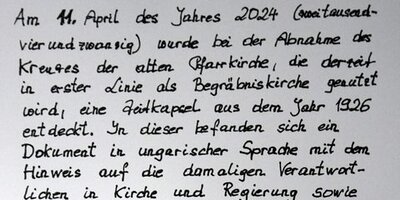 Am 11. April des Jahres 2024 (zweitausend-
vierundzwanzig) wurde bei der Abnahme des
Kreuzes der alten Pfarrkirche, die derzeit
in erster Linie als Begräbniskirche genutzt
wird, eine Zeitkapsel aus dem Jahr 1926
entdeckt. In dieser befanden sich ein
Dokument in ungarischer Sprache mit dem
Hinweis auf die damaligen Verantwort-
lichen in Kirche und Regierung sowie